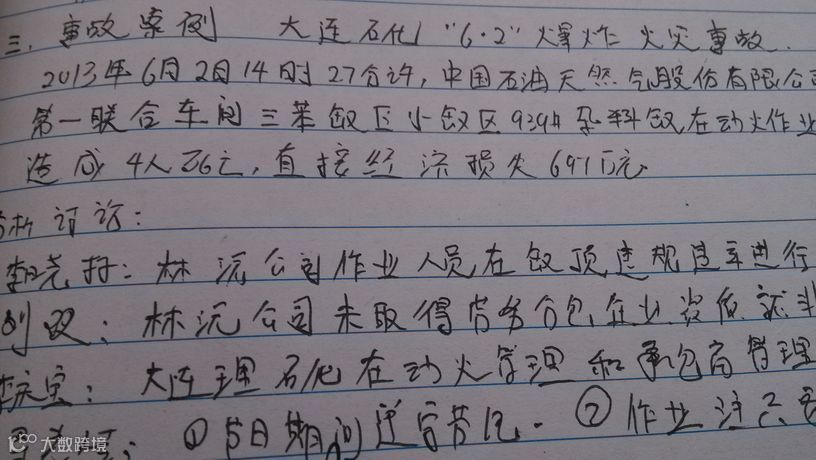 三、事故案例 大连石化"6·2"爆炸火灾事故.
2013年6月2日14时27分许,中国石油天然气股份有限公司
第一联合车间三苯罐区小罐区939#杂料罐在动火作业
造成4人死亡,直接经济损失697万元
分析讨论:
林沅公司作业人员在罐顶违规违章进行
林沅公司未取得劳务分包企业资质就
大连石化在动火管理和承包商管理
①节日期间送官节礼.②作业注
大数跨境